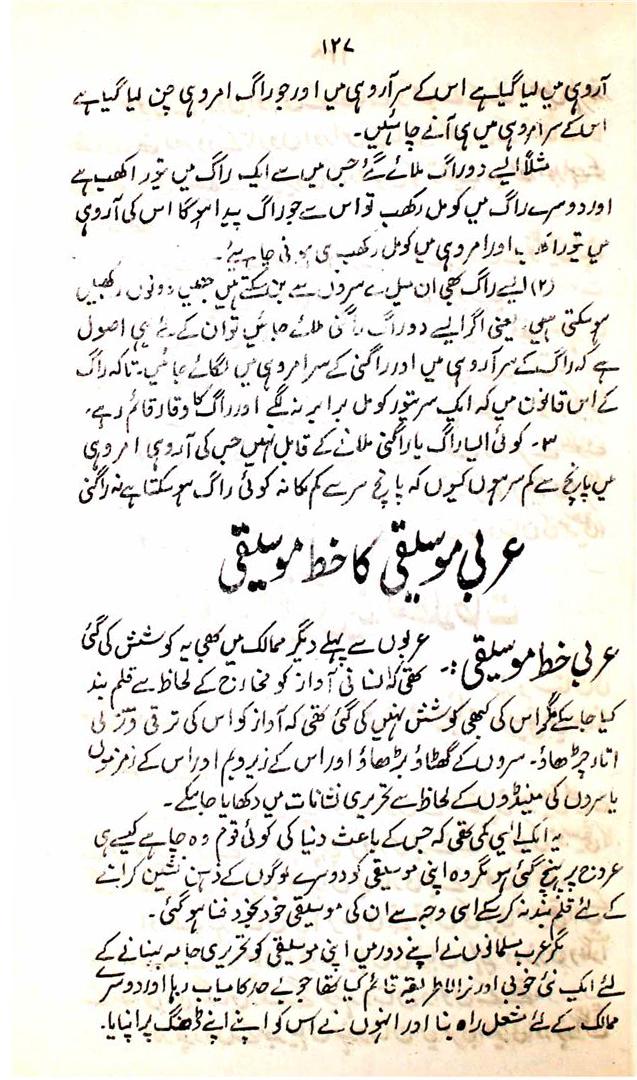 ۱۲۷
آروہی میں لیا گیا ہے اس کے سر آروہی میں اور جو راگ امروہی چن لیا گیا ہے
اس کے سر امروہی میں ہی آنے چاہئیں۔
مثلاً ایسے دو راگ ملائے گئے جس میں سے ایک راگ میں تیور رکھب ہے
اور دوسرے راگ میں کومل رکھب تو اس سے جو راگ پیدا ہوگا اس کی آروہی
میں تیور اور امروہی میں کومل رکھب ہی ہونی چاہیئے۔
(۲) ایسے راگ بھی ان میل سے سروں سے بن سکتے ہیں جنھیں دونوں رکھبیں
ہوسکتی ہیں، یعنی اگر ایسے دو راگ یا راگنی ملائے جائیں تو ان کے لئے یہی اصول
ہے کہ راگ کے سر آروہی میں اور راگنی کے سر امروہی میں لگائے جائیں۔ تاکہ راگ
کے اس قانون میں کہ ایک سر تیور کومل برابر نہ لگے اور راگ کا وقار قائم رہے۔
۳۔ کوئی ایسا راگ یا راگنی ملانے کے قابل نہیں جس کی آروہی امروہی
میں پانچ سے کم سر ہوں کیوں کہ پانچ سر سے کم کا نہ کوئی راگ ہوسکتا ہے نہ راگنی
عربی موسیقی کا خط موسیقی
عربی خط موسیقی:۔ عربوں سے پہلے دیگر ممالک میں بھی یہ کوشش کی گئی
تھی کہ انسانی آواز کو مخارج کے لحاظ سے قلم بند
کیا جاسکے مگر اس کی کبھی کوشش نہیں کی گئی تھی کہ آواز کو اس کی ترقی و تنزلی
اتار چڑھاؤ۔ سروں کے گھٹاؤ بڑھاؤ اور اس کے زیر و بم اور اس کے زمزموں
یا سروں کی مینڈوں کے لحاظ سے تحریری نشانات میں دکھایا جاسکے۔
یہ ایک ایسی کمی تھی کہ جس کے باعث دنیا کی کوئی قوم وہ چاہے کیسے ہی
عروج پر پہنچ گئی ہو مگر وہ اپنی موسیقی کو دوسرے لوگوں کے ذہن نشین کرانے
کے لئے قلم بند نہ کرسکے اسی وجہ سے ان کی موسیقی خود بخود فنا ہوگئی۔
مگر عرب مسلمانوں نے اپنے دور میں اپنی موسیقی کو تحریری جامہ پہنانے کے
لئے ایک نئی خوبی اور نرالا طریقہ قائم کیا تھا جو بے حد کامیاب رہا اور دوسرے
ممالک کے لئے مشعل راہ بنا اور انہوں نے اس کو اپنے اپنے ڈھنگ پر اپنایا۔